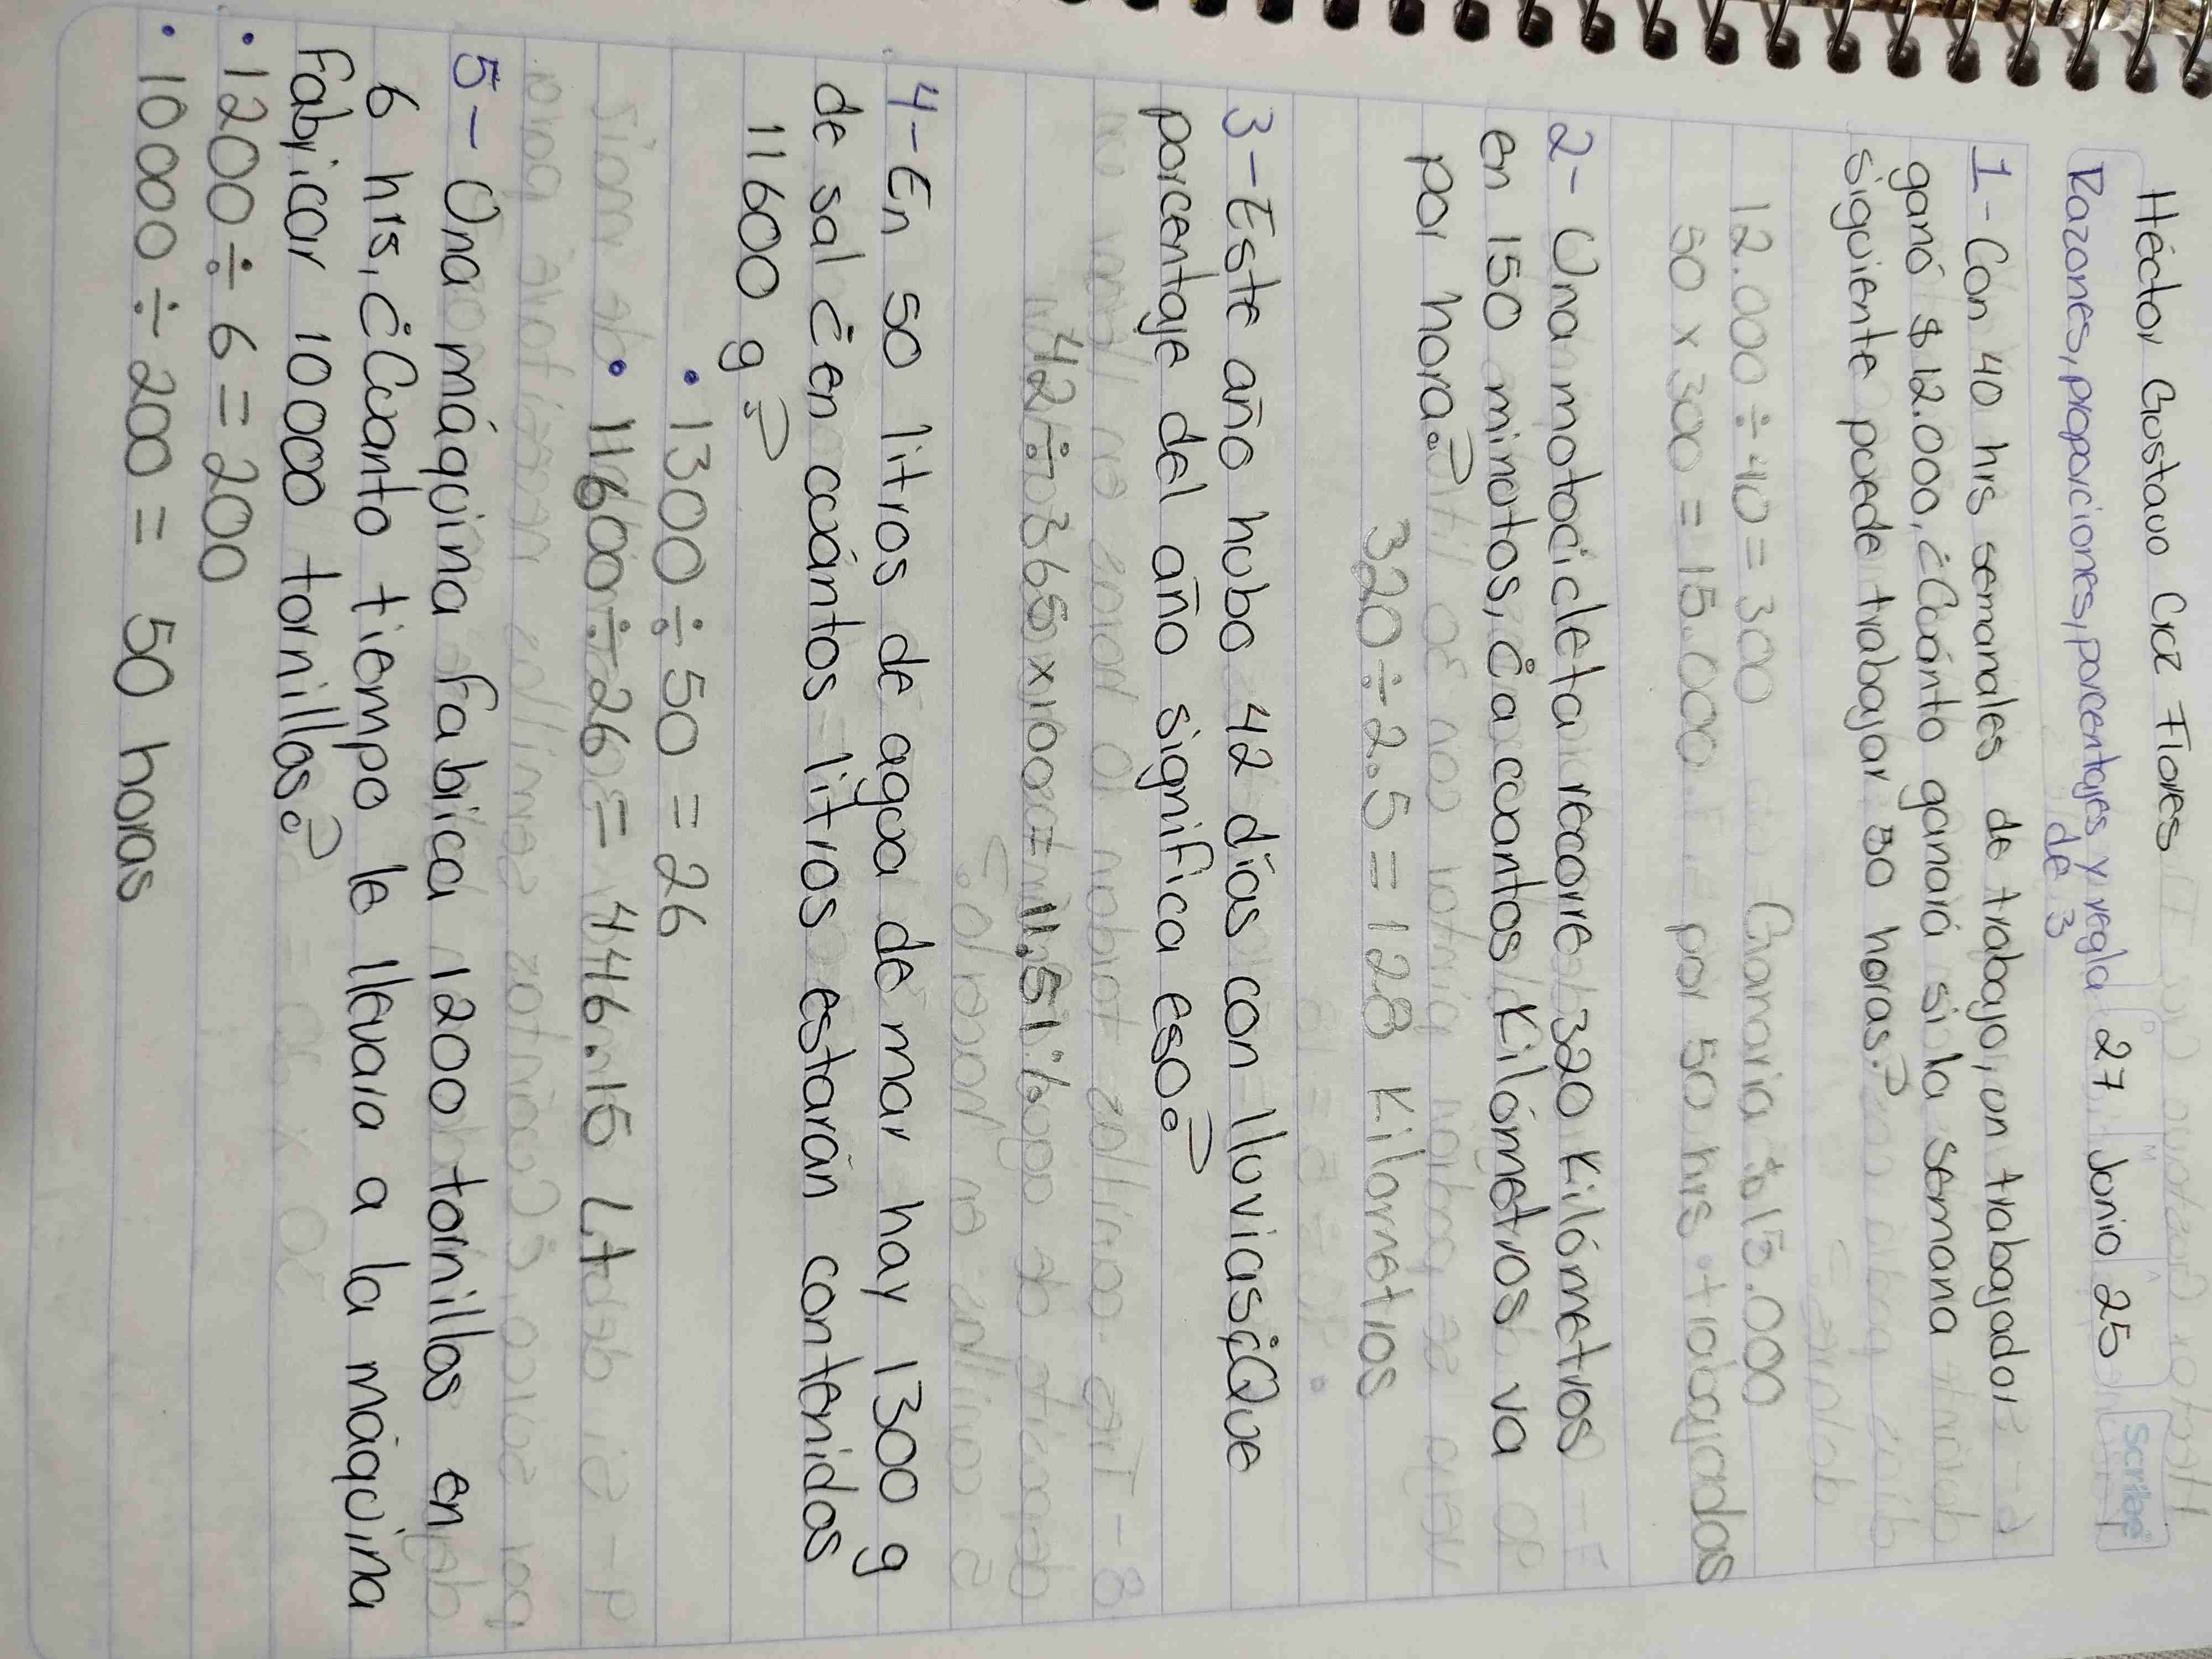 Héctor Gustavo Cruz Flores
Razones, proporciones, porcentajes y regla de 3
27 Junio 25
Scribe
1-Con 40 hrs semanales de trabajo, un trabajador
ganó $12.000, ¿Cuánto ganará si la semana
siguiente puede trabajar 50 horas?
12.000 ÷ 40 = 300 Ganaria $15.000
50 x 300 = 15.000 por 50 hrs trabajadas
2- Una motocicleta recorre 320 Kilómetros
en 150 minutos, ¿a cuantos Kilómetros va
por hora?
320 ÷ 2.5 = 128 Kilometros
3-Este año hubo 42 días con lluvias ¿Que
porcentaje del año significa eso?
42 ÷ 365 x 100 = 11.51%
4-En 50 litros de agua de mar hay 1300 g
de sal ¿en cuántos litros estarán contenidos
11600 g?
• 1300 ÷ 50 = 26
• 11600 ÷ 26 = 446.15 Lt
5- Una máquina fabrica 1200 tornillos en
6 hrs, ¿Cuanto tiempo le llevara a la máquina
Fabricar 10000 tornillos?
• 1200 ÷ 6 = 200
• 10000 ÷ 200 = 50 horas